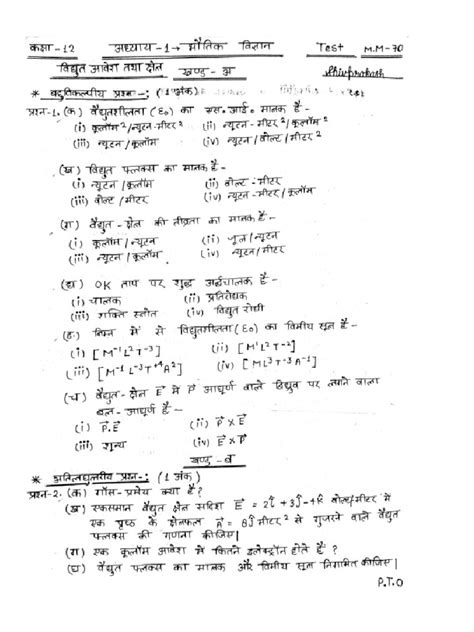 कक्षा-12 अध्याय-1→ भौतिक विज्ञान Test M.M-70
विद्युत आवेश तथा क्षेत्र खण्ड-अ Shivprakash
* बहुविकल्पीय प्रश्न-: (1 अंक)
प्रश्न-1. (क) वैद्युतशीलता (ε₀) का एस.आई. मानक है-
(i) कूलॉम²/न्यूटन-मीटर² (ii) न्यूटन-मीटर²/कूलॉम²
(iii) न्यूटन/कूलॉम (iv) न्यूटन/वोल्ट/मीटर²
(ख) विद्युत फ्लक्स का मानक है-
(i) न्यूटन/कूलॉम (ii) वोल्ट-मीटर
(iii) वोल्ट/मीटर (iv) न्यूटन-मीटर/कूलॉम
(ग) वैद्युत-क्षेत्र की तीव्रता का मानक है-
(i) कूलॉम/न्यूटन (ii) जूल/न्यूटन
(iii) न्यूटन/कूलॉम (iv) न्यूटन/मीटर
(घ) OK ताप पर शुद्ध अर्द्धचालक है-
(i) चालक (ii) प्रतिरोधक
(iii) शक्ति स्त्रोत (iv) विद्युत रोधी
(ङ) निम्न में से विद्युतशीलता (ε₀) का विमीय सूत्र है-
(i) [M⁻¹L²T⁻³] (ii) [M⁻¹L²T⁻²]
(iii) [M⁻¹L⁻³T⁺⁴A²] (iv) [ML³T⁻³A⁻¹]
(च) वैद्युत-क्षेत्र E⃗ में P⃗ आघूर्ण वाले द्विध्रुव पर लगने वाला
बल-आघूर्ण है-
(i) P⃗.E⃗ (ii) P⃗×E⃗
(iii) शून्य (iv) E⃗×P⃗
खण्ड-ब
* अतिलघुउत्तरीय प्रश्न-: (1 अंक)
प्रश्न-2. (क) गॉस-प्रमेय क्या है?
(ख) एकसमान वैद्युत क्षेत्र सदिश E⃗ = 2î+3ĵ-4k̂ वोल्ट/मीटर में
एक पृष्ठ के क्षेत्रफल A⃗ = 8ĵ मीटर² से गुजरने वाले वैद्युत
फ्लक्स की गणना कीजिए|
(ग) एक कूलॉम आवेश में कितने इलेक्ट्रॉन होते हैं?
(घ) वैद्युत फ्लक्स का मानक और विमीय सूत्र निगमित कीजिए|
P.T.O